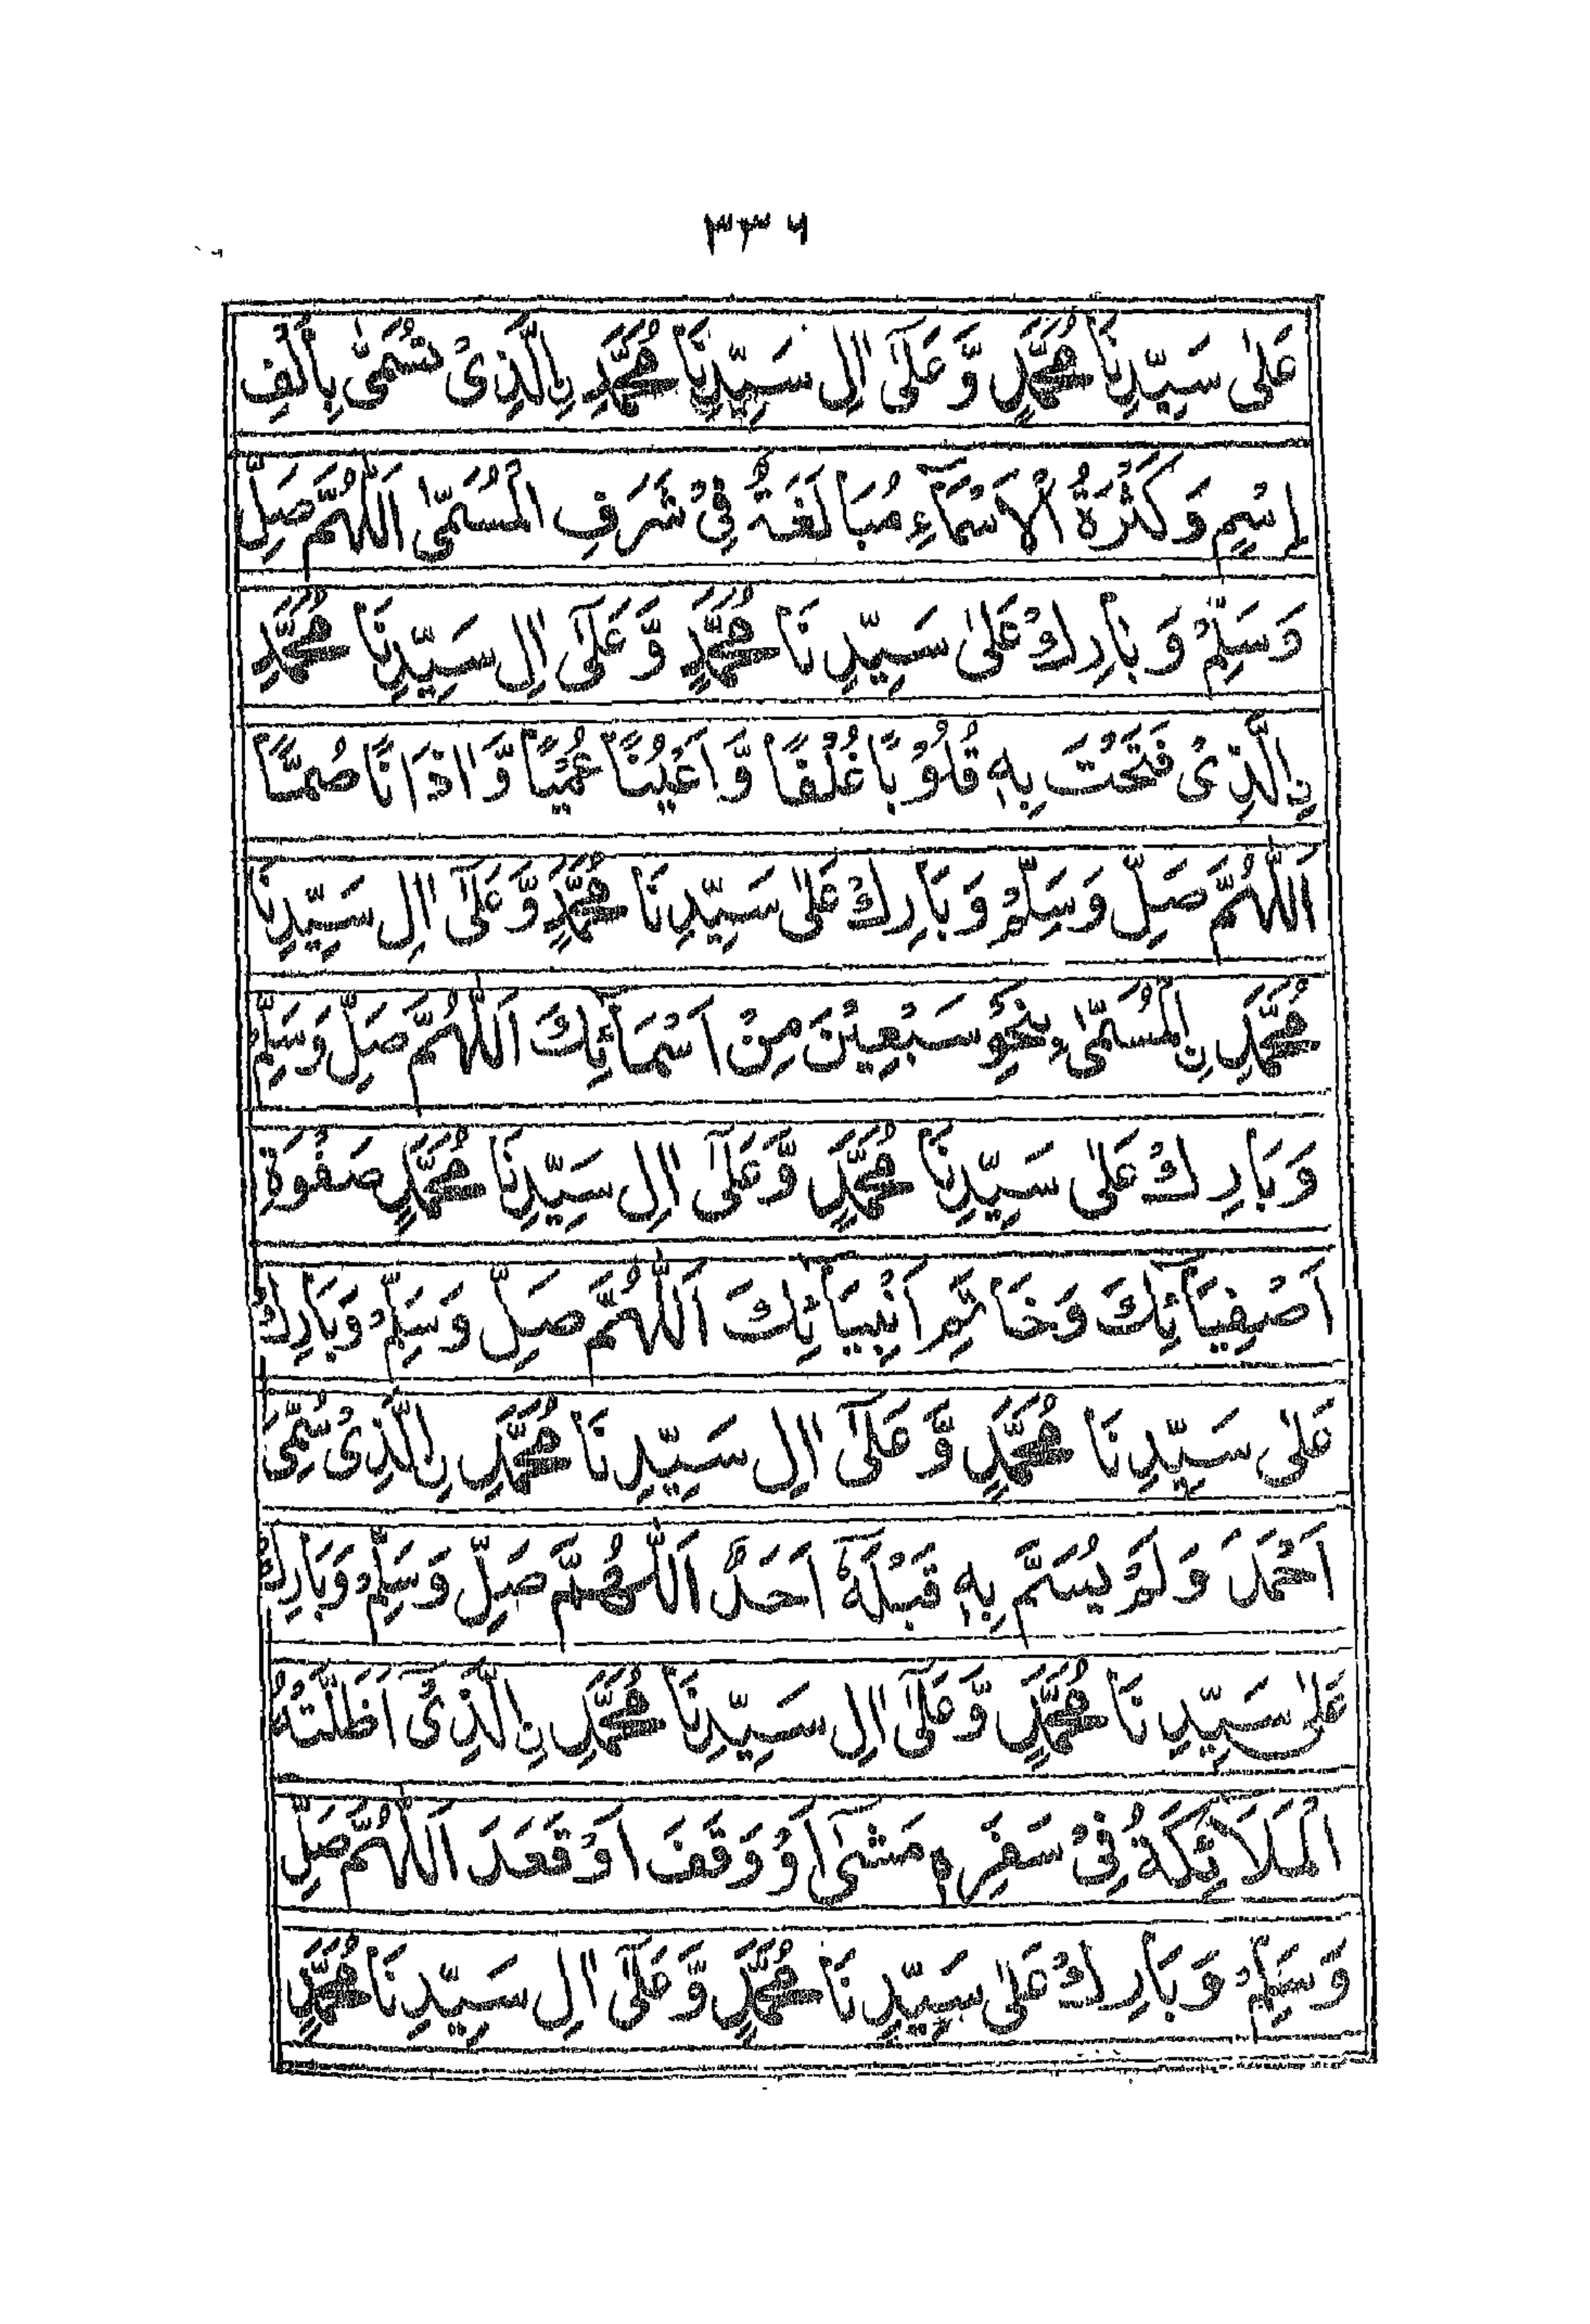 ۳۳۶
عَلٰى سَيِّدِنَا مُحَمَّدٍ وَّ عَلٰٓى اٰلِ سَيِّدِنَا مُحَمَّدِ نِالَّذِىْ تُسَمّٰى بِاَلْفِ
اِسْمٍ وَ كَثْرَةُ الْاَسْمَآءِ مُبَالَغَةٌ فِىْ شَرَفِ الْمُسَمّٰى اَللّٰهُمَّ صَلِّ
وَسَلِّمْ وَ بَارِكْ عَلٰى سَيِّدِنَا مُحَمَّدٍ وَّ عَلٰٓى اٰلِ سَيِّدِنَا مُحَمَّدِ
نِالَّذِىْ فَتَحْتَ بِهٖ قُلُوْبًا غُلْفًا وَّ اَعْيُنًا عُمْيًا وَّ اٰذَانًا صُمًّا
اَللّٰهُمَّ صَلِّ وَسَلِّمْ وَبَارِكْ عَلٰى سَيِّدِنَا مُحَمَّدٍ وَّعَلٰٓى اٰلِ سَيِّدِنَا
مُحَمَّدِ نِالْمُسَمّٰى بِنَحْوِ سَبْعِيْنَ مِنْ اَسْمَآئِكَ اَللّٰهُمَّ صَلِّ وَسَلِّمْ
وَبَارِكْ عَلٰى سَيِّدِنَا مُحَمَّدٍ وَّعَلٰٓى اٰلِ سَيِّدِنَا مُحَمَّدٍ صَفْوَةِ
اَصْفِيَآئِكَ وَخَاتِمِ اَنْبِيَائِكَ اَللّٰهُمَّ صَلِّ وَسَلِّمْ وَبَارِكْ
عَلٰى سَيِّدِنَا مُحَمَّدٍ وَّ عَلٰٓى اٰلِ سَيِّدِنَا مُحَمَّدِ نِالَّذِىْ سُمِّىَ
اَحْمَدَ وَلَمْ يُسَمَّ بِهٖ قَبْلَهٗٓ اَحَدٌ اَللّٰهُمَّ صَلِّ وَسَلِّمْ وَبَارِكْ
عَلٰى سَيِّدِنَا مُحَمَّدٍ وَّعَلٰٓى اٰلِ سَيِّدِنَا مُحَمَّدِ نِالَّذِىْٓ اَظَلَّتْهُ
الْمَلَائِكَةُ فِىْ سَفَرِهٖ مَشٰىٓ اَوْ وَقَفَ اَوْ قَعَدَ اَللّٰهُمَّ صَلِّ
وَسَلِّمْ وَبَارِكْ عَلٰى سَيِّدِنَا مُحَمَّدٍ وَّعَلٰٓى اٰلِ سَيِّدِنَا مُحَمَّدٍ